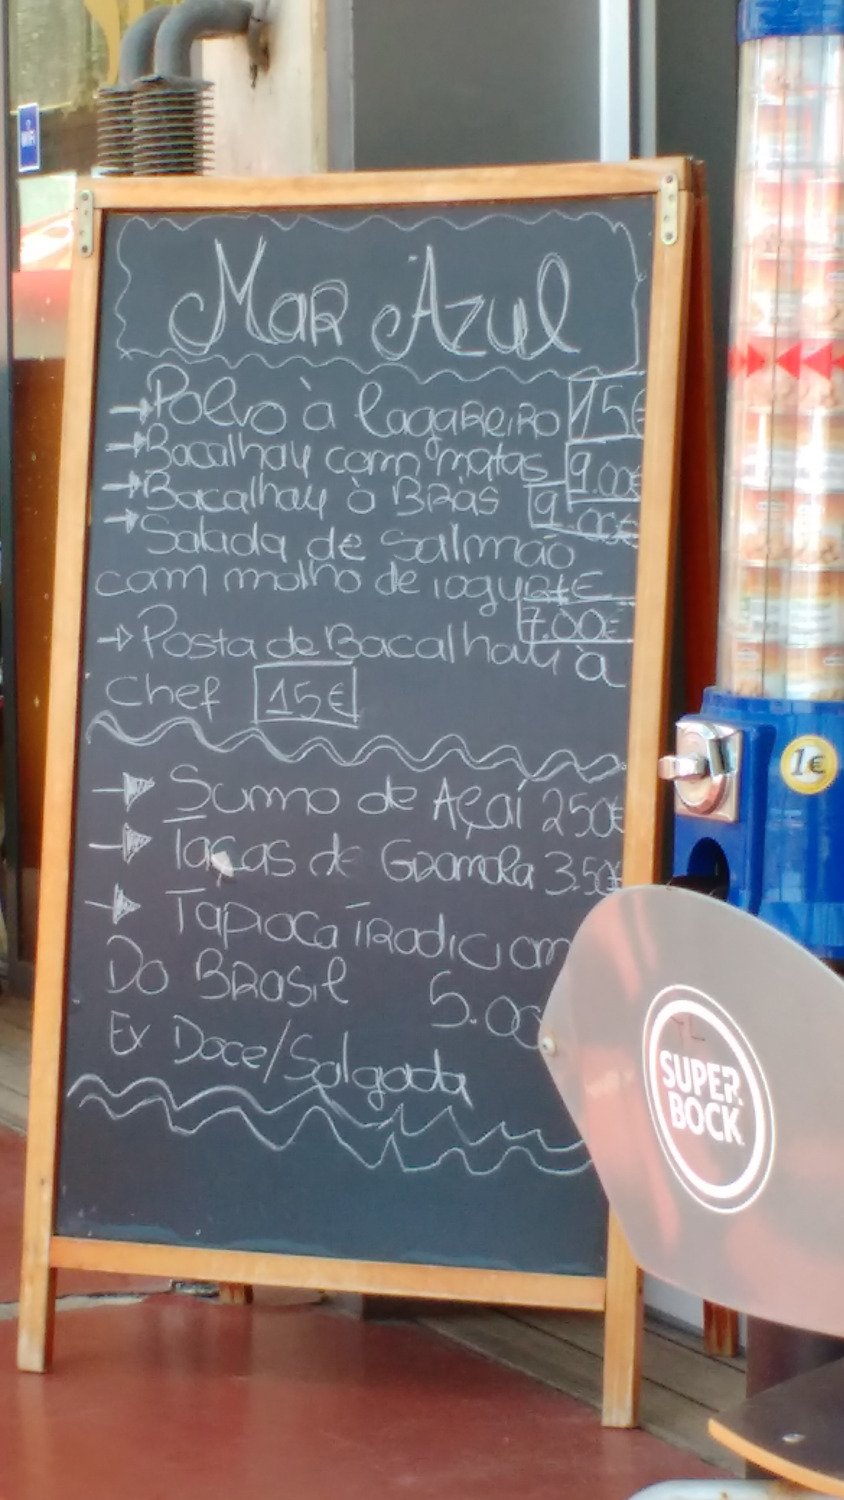 Mar Azul
Polvo à lagareiro 15€
Bacalhau com natas 9.00€
Bacalhau à Brás 9.00€
Salada de Salmão
com molho de iogurte
7.00€
Posta de Bacalhau à
Chef 15€
Sumo de Açaí 250€
Taças de Granola 3.50€
Tapioca Tradicion
Do Brasil 5.00
Ex Doce/Salgada
1€
SUPER
BOCK